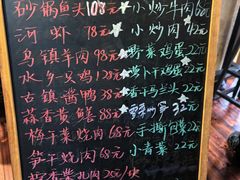 砂锅鱼头 108元
河虾 78元
乌镇羊肉 98元
水乡豆鸡 28元
古镇酱鸭 38元
蒜香黄鳝 88元
梅干菜烧肉 68元
笋干烧肉 68元
小炒牛肉 62元
小炒鸡 42元
野菜鸡蛋 22元
萝卜干鸡蛋 22元
香干马兰头 22元
32元
手撕包菜 22元
小青菜 22元